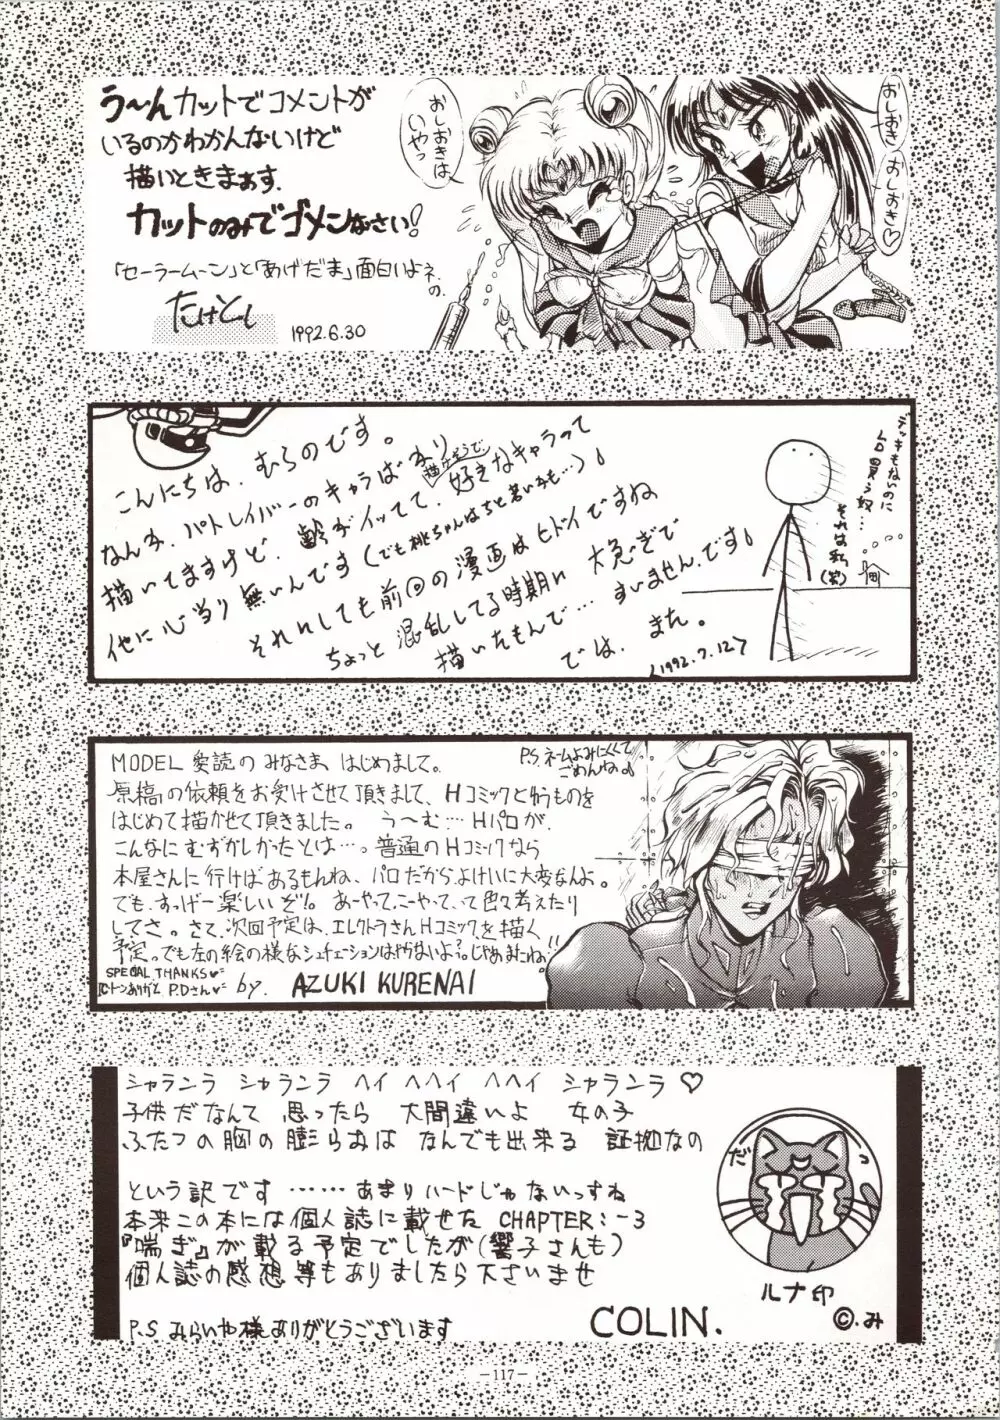 う〜んカットでコメントが
いるのかわかんないけど
描いときまぁす.
カットのみでゴメンなさい!
「セーラームーン」と「あげだま」面白いよネ.
の.
たけとし
1992.6.30
おしおきは
いやっ
おしおき おしおき♡
こんにちは、むらのです。
なんか、パトレイバーのキャラばかり
描いてますけど、齢がイッてて、好きなキャラって
他に心当り無いんです(でも桃ちゃんはちと若いかも…)♪
それにしても前回の漫画はヒドイですね
ちょっと混乱してる時期に大急ぎで
描いたもんで… すいません、です♪
では、また。
<1992.7.12>
デッキもないのに
LD買う奴…
それは私(笑)
MODEL 愛読のみなさま、はじめまして。
原稿の依頼をお受けさせて頂きまして、Hコミックと侑うものを
はじめて描かせて頂きました。う〜む…Hパロが、
こんなにむずかしかったとは…。普通のHコミックなら
本屋さんに行けばあるもんね、パロだからよけいに大変なんよ。
でも、すっげー楽しいぞ!。あーやって、こーやって、って色々考えたり
してさ。さて、次回予定は、エレクトラさんHコミックを描く
予定。でも左の絵の様なシチュエーションはやらないよ〜。じゃあみこわね!!
SPECIAL THANKS♥
トーンありがと P.Dさん♥ by. AZUKI KURENAI
P.S ネームよみにくくて
ごめんね♪
シャランラ シャランラ ヘイ ヘヘイ ヘヘイ シャランラ ♡
子供だなんて 思ったら 大間違いよ 女の子
ふたつの胸の膨らみは なんでも出来る 証拠なの
という訳です ……あまりハードじゃないっすね
本来この本には個人誌に載せた CHAPTER:-3
『喘ぎ』が載る予定でしたが(響子さんも)
個人誌の感想等もありましたら下さいませ
P.S みらいや様ありがとうございます
COLIN.
だ
ルナ印
©.み
－117－